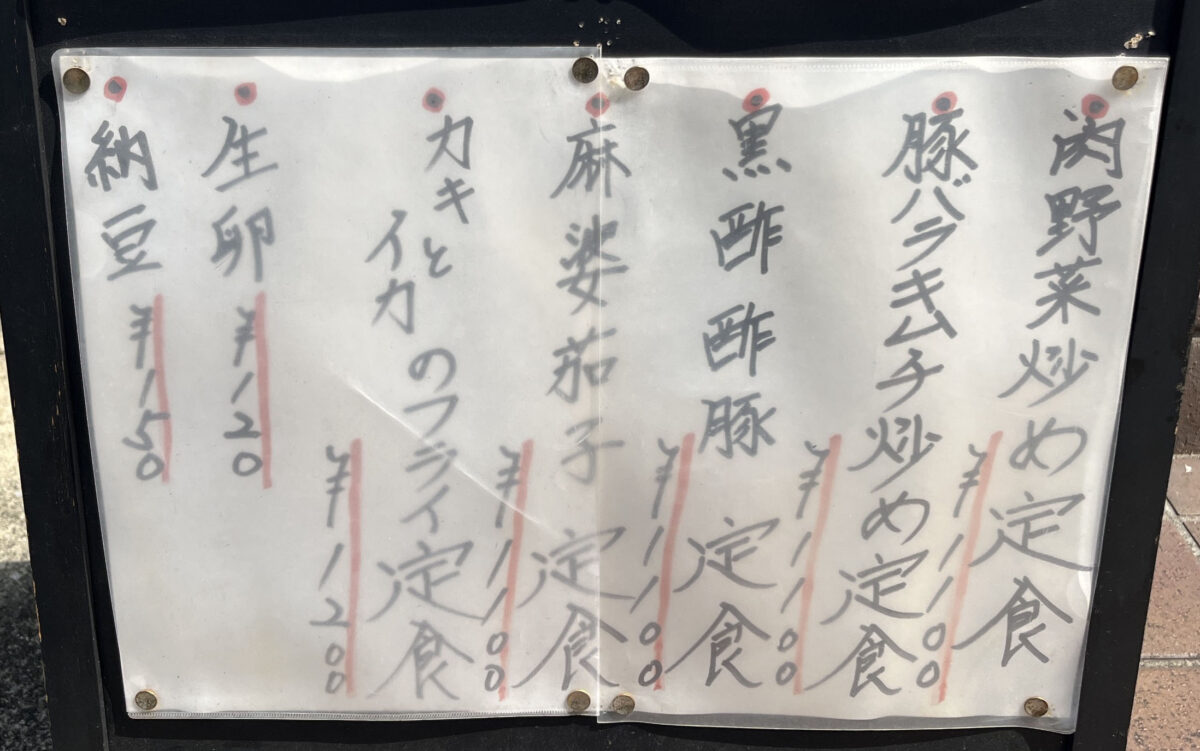 肉野菜炒め定食
¥1100
豚バラキムチ炒め定食
¥1100
黒酢酢豚定食
¥1100
麻婆茄子定食
¥1100
カキとイカのフライ定食
¥1200
生卵 ¥120
納豆 ¥150